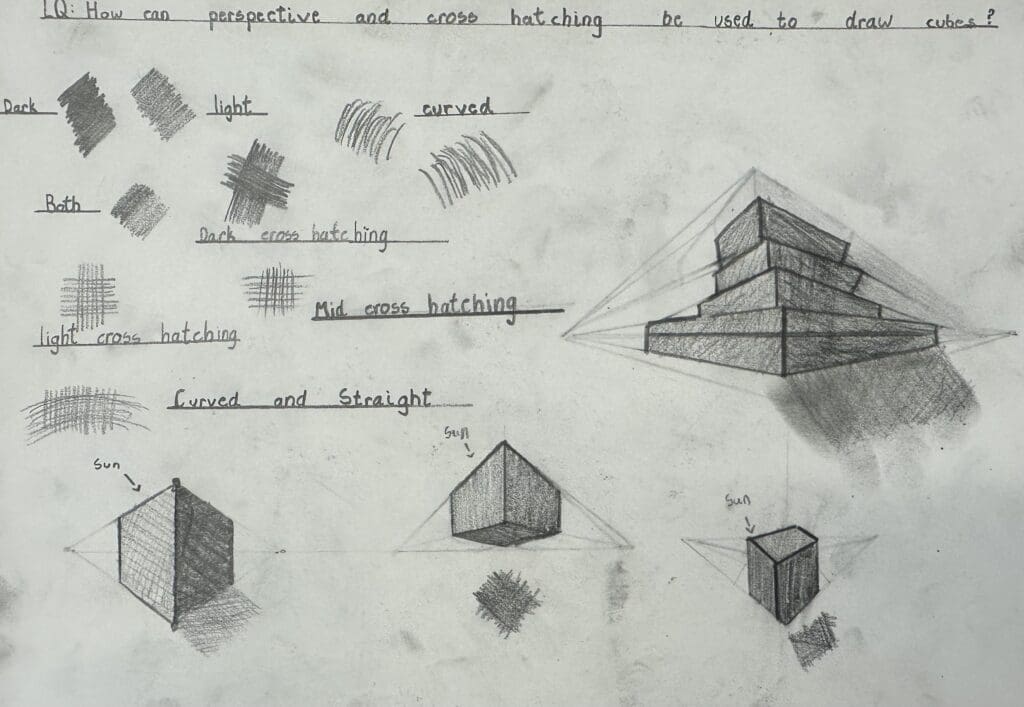 LQ: How can perspective and cross hatching be used to draw cubes?
Dark
light
curved
Both
Dark cross hatching
light cross hatching
Mid cross hatching
Curved and Straight
Sun
Sun
Sun